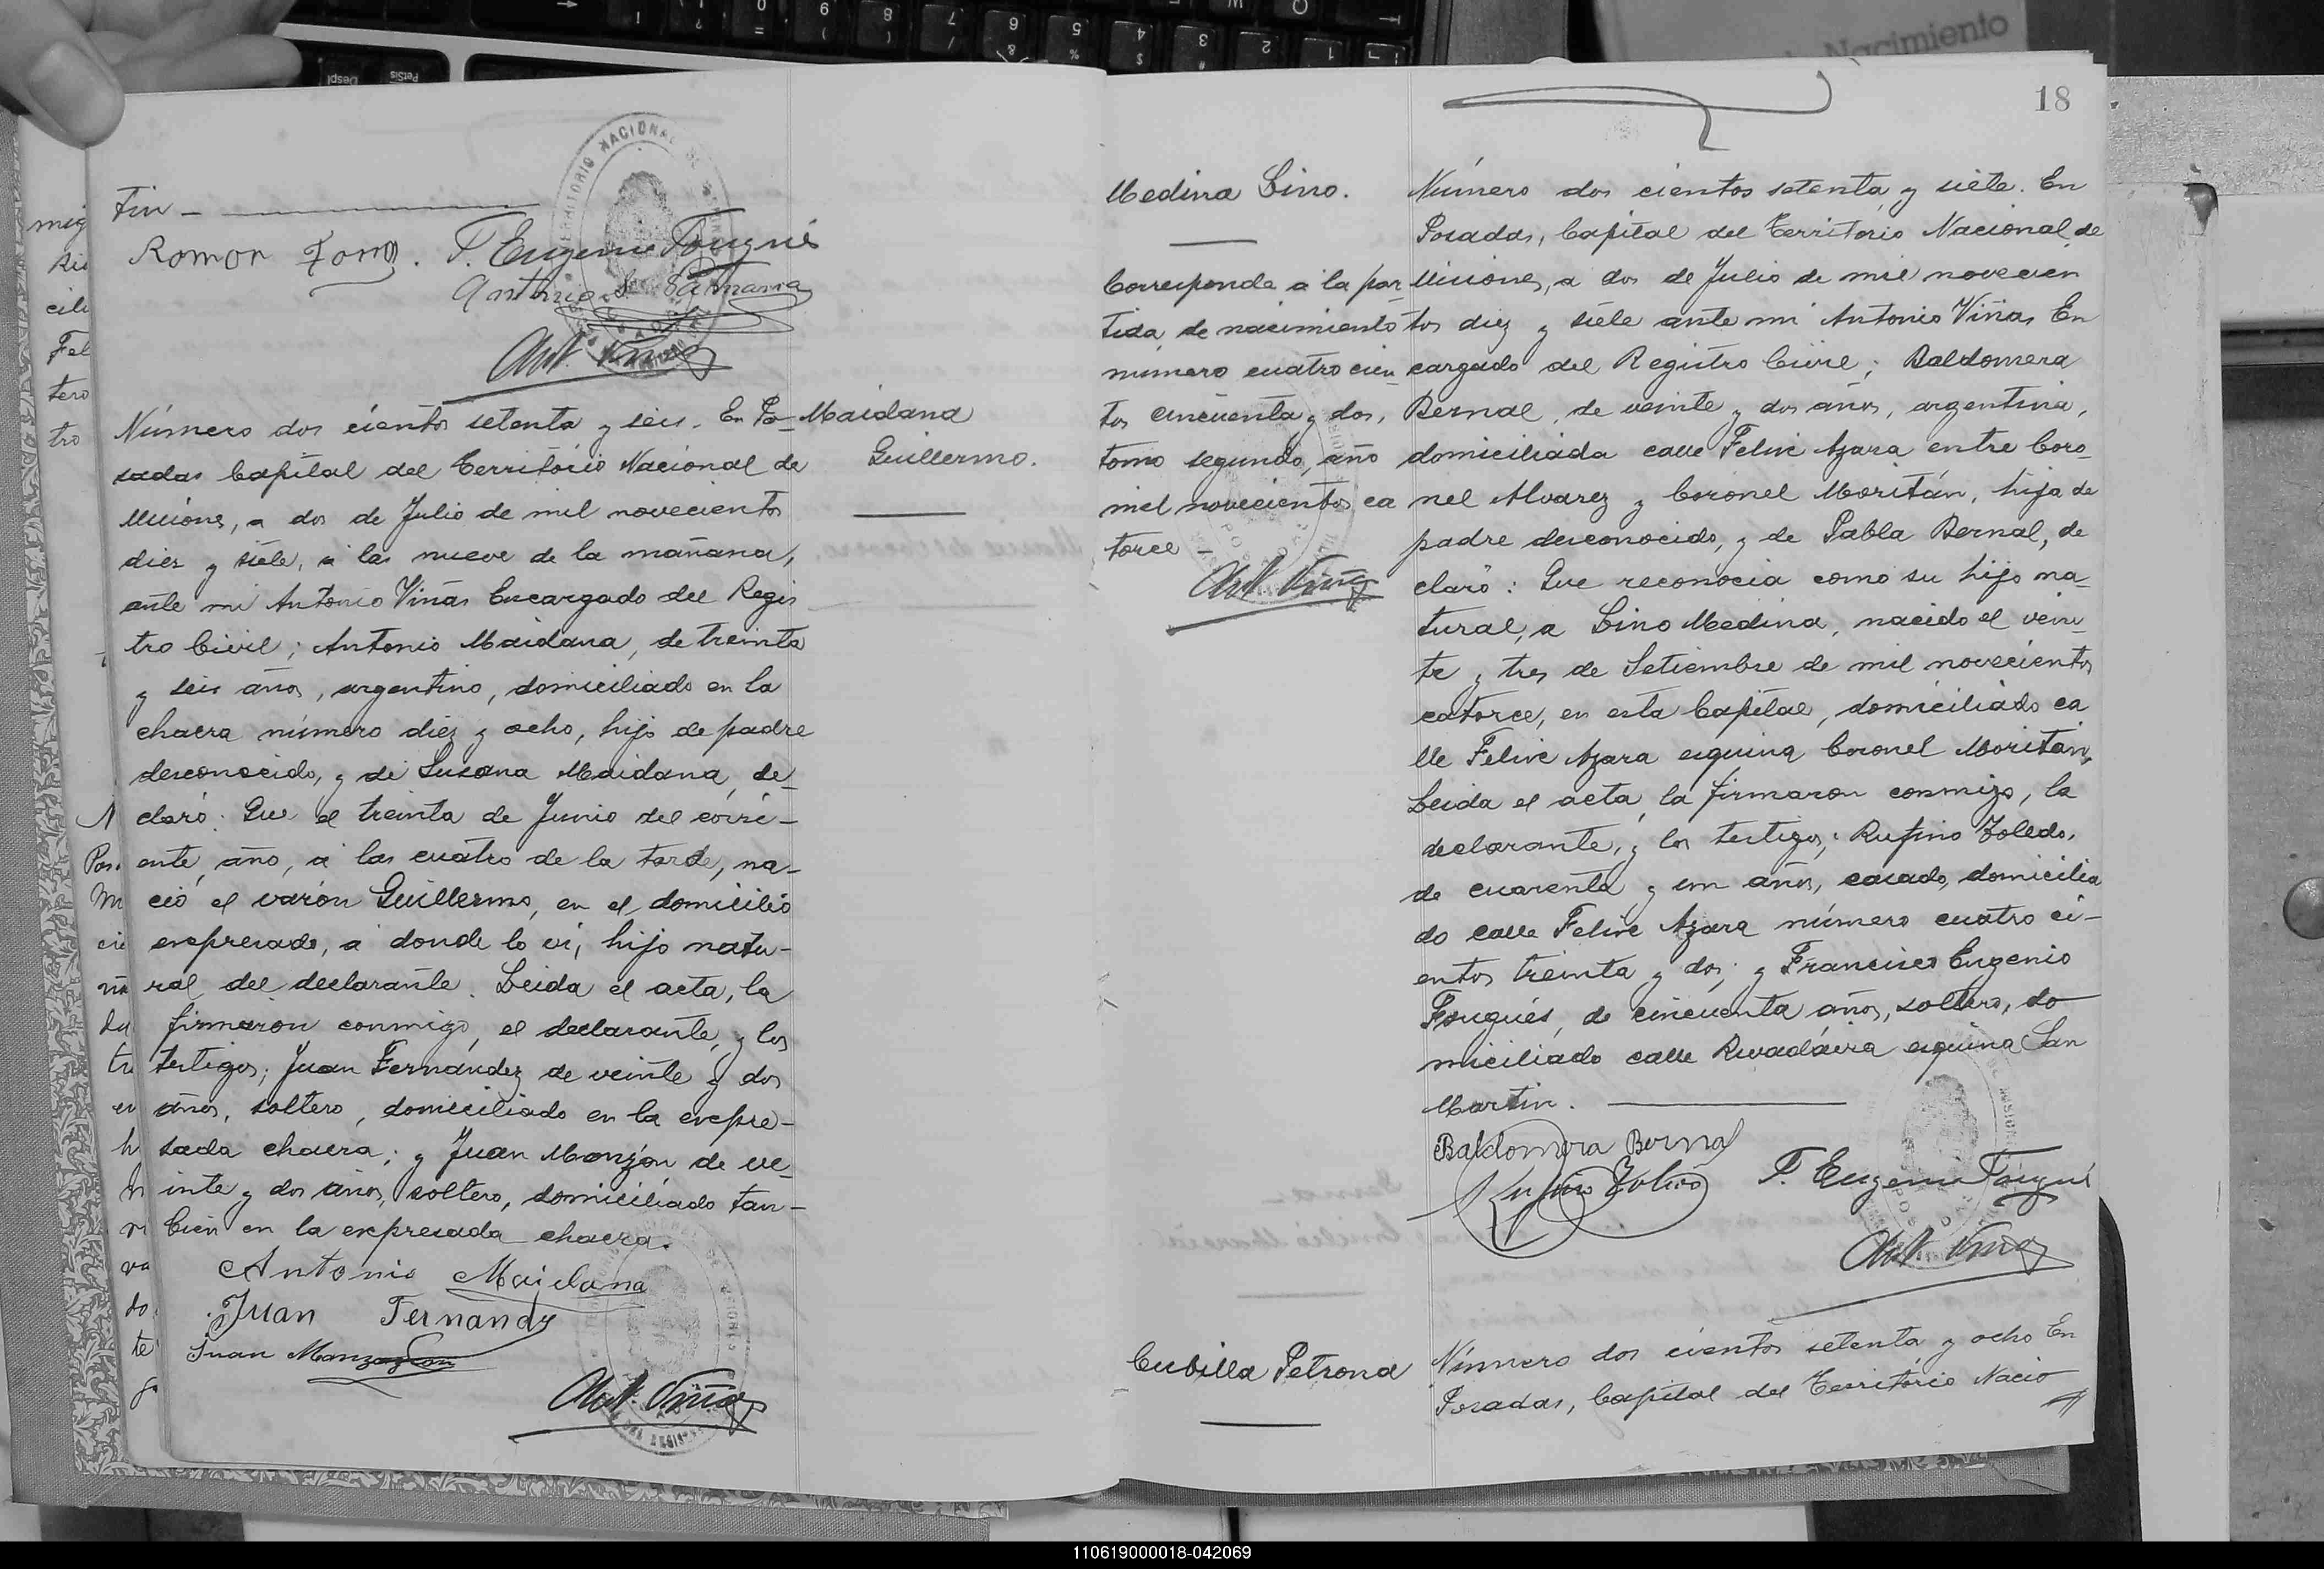 tin —
Roman
F. Eugenio Fougués
Ant. Viñas
Número dos cientos setenta y seis. En Po-
sadas Capital del Territorio Nacional de
Misiones, a dos de Julio de mil novecientos
diez y siete, a las nueve de la mañana,
ante mi Antonio Viñas Encargado del Regis
tro Civil; Antonio Maidana, de treinta
y seis años, argentino, domiciliado en la
chacra número diez y ocho, hijo de padre
desconocido, y de Susana Maidana, de-
claró: Que el treinta de Junio del corri-
ente, año, á las cuatro de la tarde, na-
ció el varón Guillermo, en el domicilio
expresado, a donde lo vi, hijo natu-
ral del declarante. Leida el acta, la
firmaron conmigo, el declarante, y los
testigos; Juan Fernández de veinte y dos
años, soltero, domiciliado en la expre-
sada chacra; y Juan Monzón de ve-
inte y dos años, soltero, domiciliado tan-
bien en la expresada chacra.
Antonio Maidana
Juan Fernandz
Juan
Ant. Viñas
Maidana
Guillermo.
18
Medina Lino.
Corresponde a la par
tida de nacimiento
número cuatro cien
tos cincuenta y dos,
tomo segundo, año
mil novecientos ca
torce —
Ant. Viñas
Número dos cientos setenta y siete. En
Posadas, Capital del Territorio Nacional de
Misiones, a dos de Julio de mil novecien
tos diez y siete ante mi Antonio Viñas En
cargado del Registro Civil; Baldomera
Bernal, de veinte y dos años, argentina,
domiciliada calle Felix Azara entre Coro-
nel Alvarez y Coronel Moritán, hija de
padre desconocido, y de Pabla Bernal, de
claró: Que reconocia como su hijo na-
tural, a Lino Medina, nacido el vein-
te y tres de Setiembre de mil novecientos
catorce, en esta Capital, domiciliado ca
lle Felix Azara esquina Coronel Moritán.
Leida el acta, la firmaron conmigo, la
declarante, y los testigos; Rufino Toledo,
de cuarenta y un años, casado, domicilia
do calle Felix Azara número cuatro ci-
entos treinta y dos; y Francisco Eugenio
Fougués, de cincuenta años, soltero, do
miciliado calle Rivadavia esquina San
Martin.
Baldomera Bernal
Rufino Toledo
F. Eugenio Fougués
Ant. Viñas
Cubilla Petrona
Número dos cientos setenta y ocho En
Posadas, Capital del Territorio Nacio
110619000018-042069